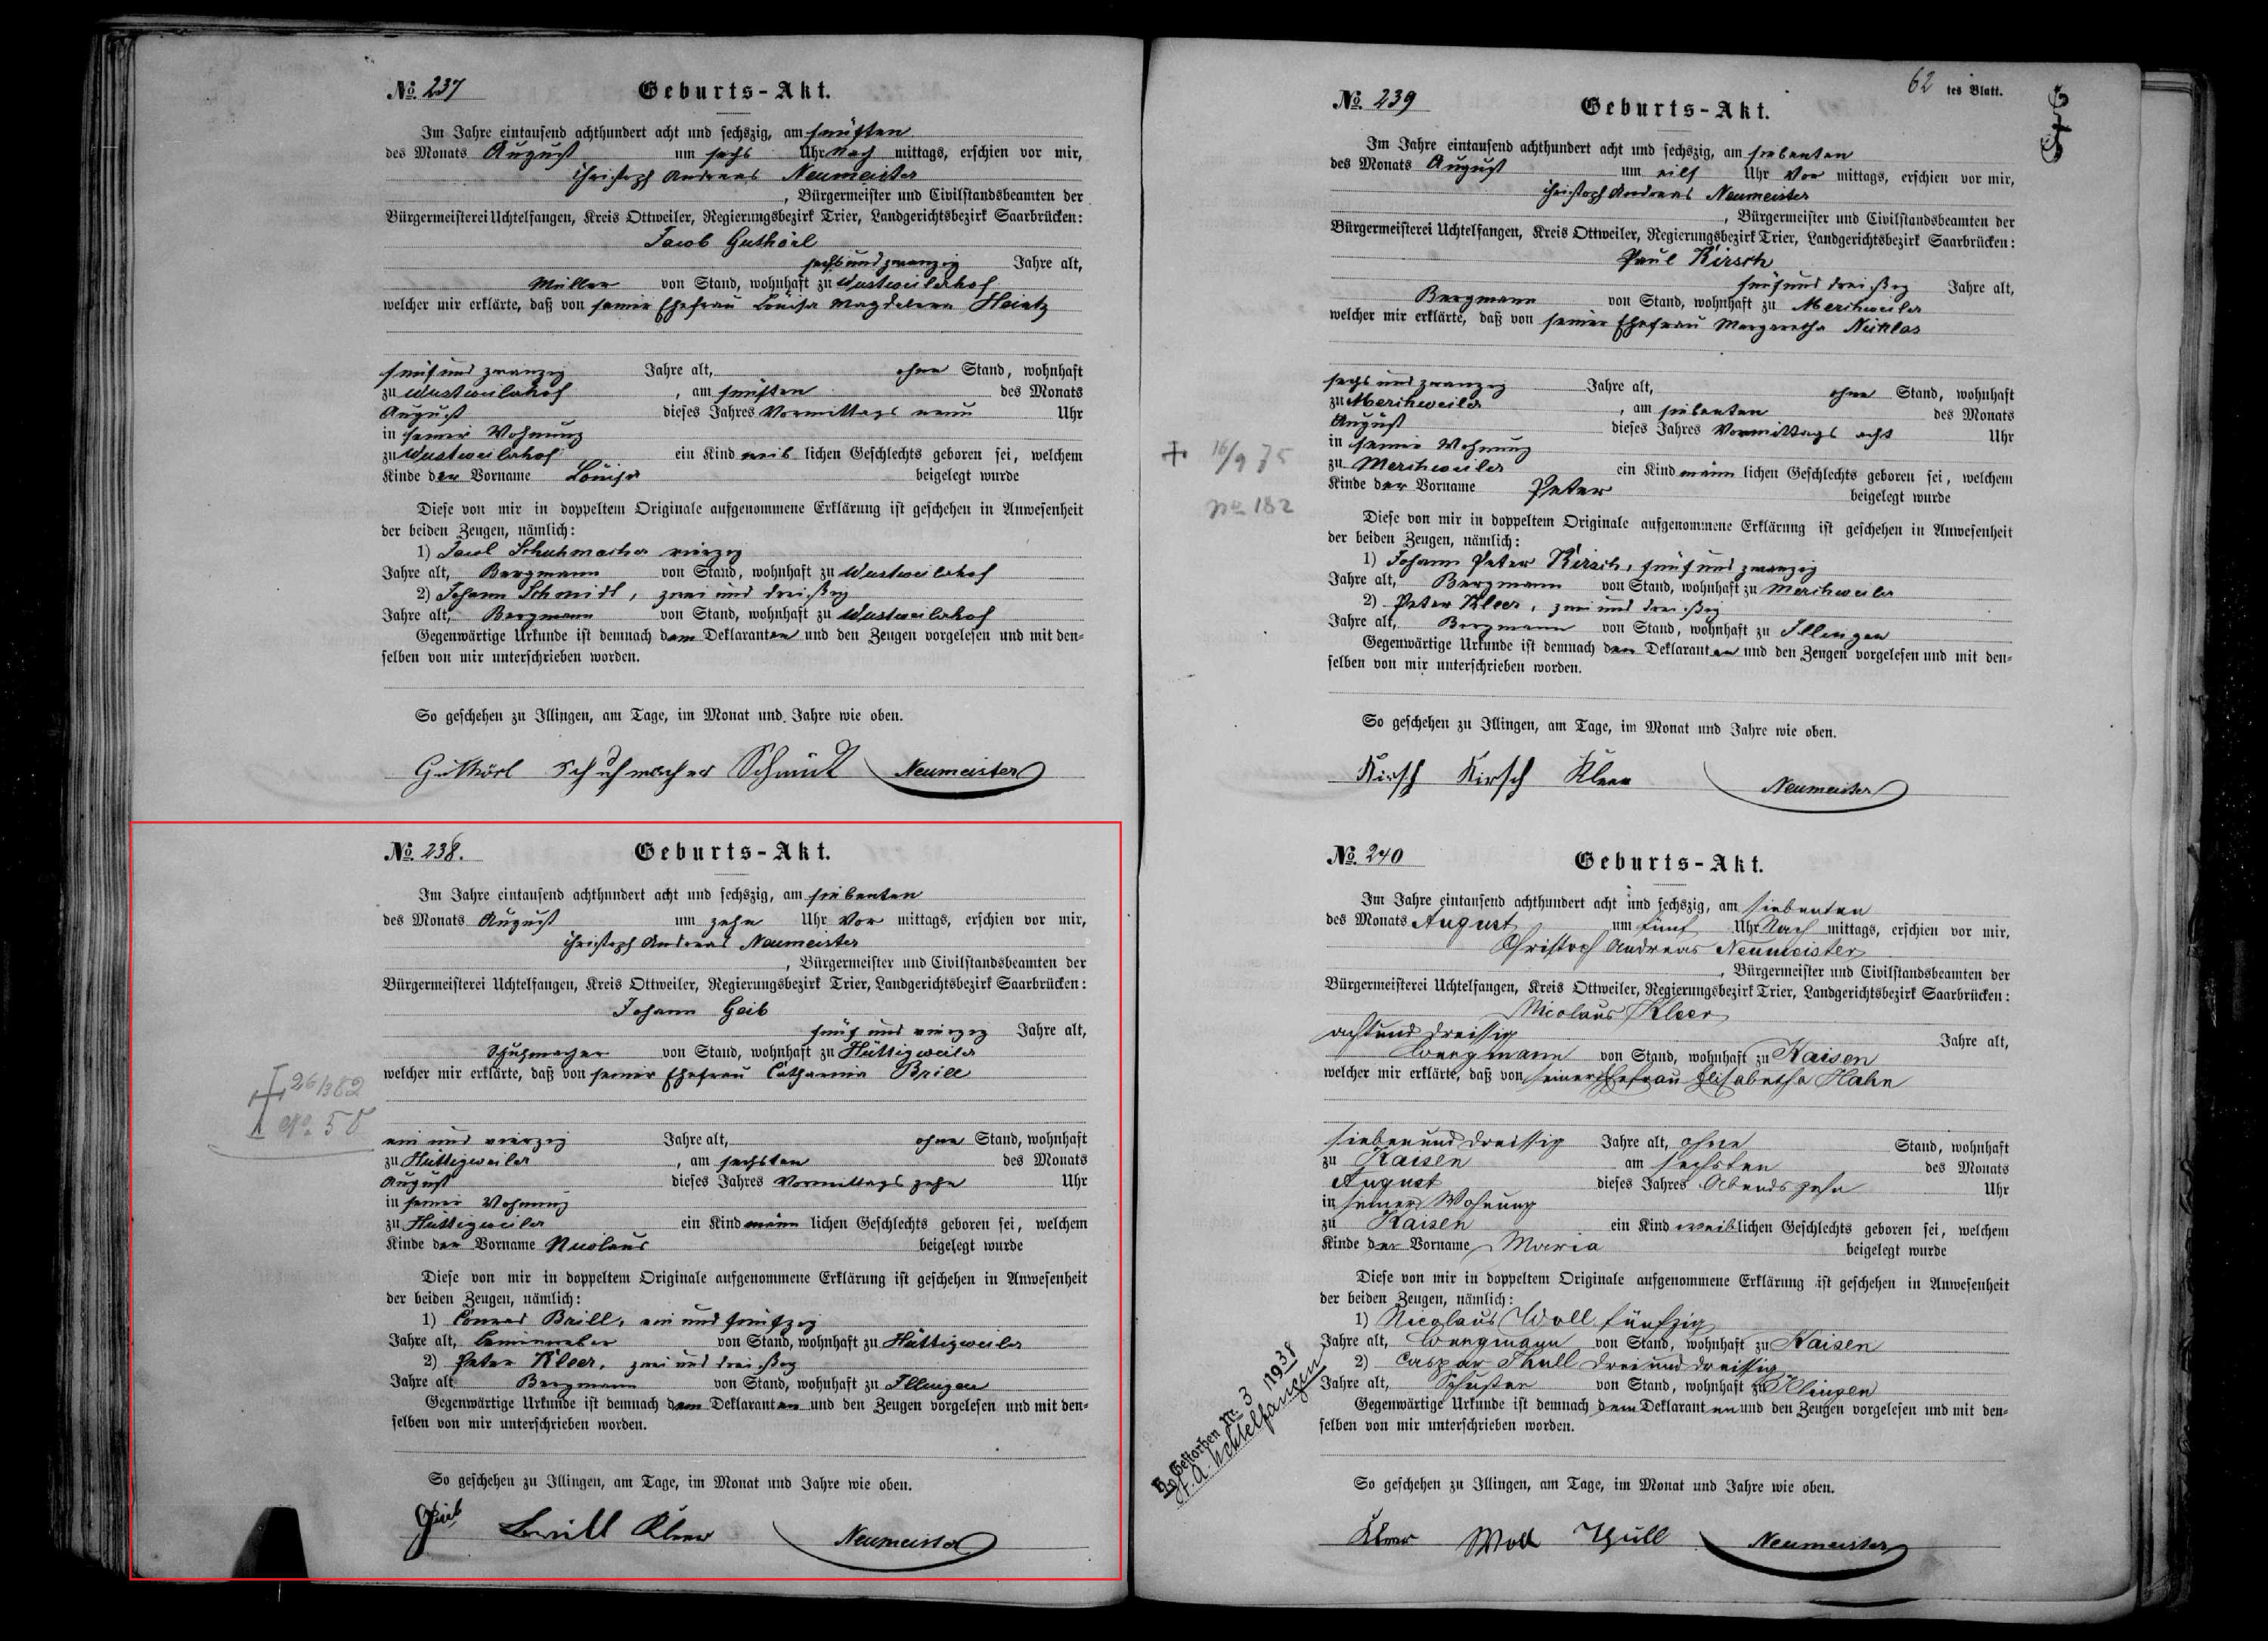 No. 237
Geburts-Akt.
Im Jahre eintausend achthundert acht und sechszig, am fünften
des Monats August um sechs Uhr Nach mittags, erschien vor mir,
Christoph Andreas Neumeister
, Bürgermeister und Civilstandsbeamten der
Bürgermeisterei Uchtelfangen, Kreis Ottweiler, Regierungsbezirk Trier, Landgerichtsbezirk Saarbrücken:
Jacob Guthörl
sechs und zwanzig Jahre alt,
Müller von Stand, wohnhaft zu Wustweilerhof
welcher mir erklärte, daß von seiner Ehefrau Louisa Magdalena Heintz
fünf und zwanzig Jahre alt, ohne Stand, wohnhaft
zu Wustweilerhof, am fünften des Monats
August dieses Jahres Vormittags neun Uhr
in seiner Wohnung
zu Wustweilerhof ein Kind weib lichen Geschlechts geboren sei, welchem
Kinde der Vorname Louisa beigelegt wurde
Diese von mir in doppeltem Originale aufgenommene Erklärung ist geschehen in Anwesenheit
der beiden Zeugen, nämlich:
1) Jacob Schuhmacher vierzig
Jahre alt, Bergmann von Stand, wohnhaft zu Wustweilerhof
2) Johann Schmidt, zwei und dreißig
Jahre alt, Bergmann von Stand, wohnhaft zu Wustweilerhof
Gegenwärtige Urkunde ist demnach dem Deklaranten und den Zeugen vorgelesen und mit den=
selben von mir unterschrieben worden.
So geschehen zu Illingen, am Tage, im Monat und Jahre wie oben.
Guthörl Schuhmacher Schmidt Neumeister
No. 238.
Geburts-Akt.
Im Jahre eintausend achthundert acht und sechszig, am siebenten
des Monats August um zehn Uhr Vor mittags, erschien vor mir,
Christoph Andreas Neumeister
, Bürgermeister und Civilstandsbeamten der
Bürgermeisterei Uchtelfangen, Kreis Ottweiler, Regierungsbezirk Trier, Landgerichtsbezirk Saarbrücken:
Johann Geib
fünf und vierzig Jahre alt,
Schuhmacher von Stand, wohnhaft zu Hüttigweiler
welcher mir erklärte, daß von seiner Ehefrau Catharina Brill
† 26/3 82
No. 50
ein und vierzig Jahre alt, ohne Stand, wohnhaft
zu Hüttigweiler, am sechsten des Monats
August dieses Jahres Vormittags zehn Uhr
in seiner Wohnung
zu Hüttigweiler ein Kind männ lichen Geschlechts geboren sei, welchem
Kinde der Vorname Nicolaus beigelegt wurde
Diese von mir in doppeltem Originale aufgenommene Erklärung ist geschehen in Anwesenheit
der beiden Zeugen, nämlich:
1) Conrad Brill, ein und fünfzig
Jahre alt, Leinenweber von Stand, wohnhaft zu Hüttigweiler
2) Peter Kleer, zwei und dreißig
Jahre alt Bergmann von Stand, wohnhaft zu Illingen
Gegenwärtige Urkunde ist demnach dem Deklaranten und den Zeugen vorgelesen und mit den=
selben von mir unterschrieben worden.
So geschehen zu Illingen, am Tage, im Monat und Jahre wie oben.
Geib Brill Kleer Neumeister
62 tes Blatt.
No. 239
Geburts-Akt.
Im Jahre eintausend achthundert acht und sechszig, am siebenten
des Monats August um eilf Uhr Vor mittags, erschien vor mir,
Christoph Andreas Neumeister
, Bürgermeister und Civilstandsbeamten der
Bürgermeisterei Uchtelfangen, Kreis Ottweiler, Regierungsbezirk Trier, Landgerichtsbezirk Saarbrücken:
Paul Kirsch
fünf und dreißig Jahre alt,
Bergmann von Stand, wohnhaft zu Merchweiler
welcher mir erklärte, daß von seiner Ehefrau Margaretha Nicklas
sechs und zwanzig Jahre alt, ohne Stand, wohnhaft
zu Merchweiler, am siebenten des Monats
August dieses Jahres Vormittags acht Uhr
in seiner Wohnung
† 16/9 75
zu Merchweiler ein Kind männ lichen Geschlechts geboren sei, welchem
Kinde der Vorname Peter beigelegt wurde
No 182
Diese von mir in doppeltem Originale aufgenommene Erklärung ist geschehen in Anwesenheit
der beiden Zeugen, nämlich:
1) Johann Peter Kirsch, fünf und zwanzig
Jahre alt, Bergmann von Stand, wohnhaft zu Merchweiler
2) Peter Kleer, zwei und dreißig
Jahre alt, Bergmann von Stand, wohnhaft zu Illingen
Gegenwärtige Urkunde ist demnach dem Deklaranten und den Zeugen vorgelesen und mit den=
selben von mir unterschrieben worden.
So geschehen zu Illingen, am Tage, im Monat und Jahre wie oben.
Kirsch Kirsch Kleer Neumeister
No. 240
Geburts-Akt.
Im Jahre eintausend achthundert acht und sechszig, am siebenten
des Monats August um fünf Uhr Nach mittags, erschien vor mir,
Christoph Andreas Neumeister
, Bürgermeister und Civilstandsbeamten der
Bürgermeisterei Uchtelfangen, Kreis Ottweiler, Regierungsbezirk Trier, Landgerichtsbezirk Saarbrücken:
Nicolaus Kleer
acht und dreissig Jahre alt,
Bergmann von Stand, wohnhaft zu Kaisen
welcher mir erklärte, daß von seiner Ehefrau Elisabetha Hahn
sieben und dreissig Jahre alt, ohne Stand, wohnhaft
zu Kaisen am sechsten des Monats
August dieses Jahres Abends zehn Uhr
in seiner Wohnung
zu Kaisen ein Kind weiblichen Geschlechts geboren sei, welchem
Kinde der Vorname Maria beigelegt wurde
Diese von mir in doppeltem Originale aufgenommene Erklärung ist geschehen in Anwesenheit
der beiden Zeugen, nämlich:
1) Nicolaus Woll fünfzig
Jahre alt, Bergmann von Stand, wohnhaft zu Kaisen
2) Caspar Thull drei und dreissig
Jahre alt, Schuster von Stand, wohnhaft zu Illingen
Gegenwärtige Urkunde ist demnach dem Deklaranten und den Zeugen vorgelesen und mit den=
selben von mir unterschrieben worden.
Gestorben Nr. 3 1938
St. A. Uchtelfangen
So geschehen zu Illingen, am Tage, im Monat und Jahre wie oben.
Kleer Woll Thull Neumeister